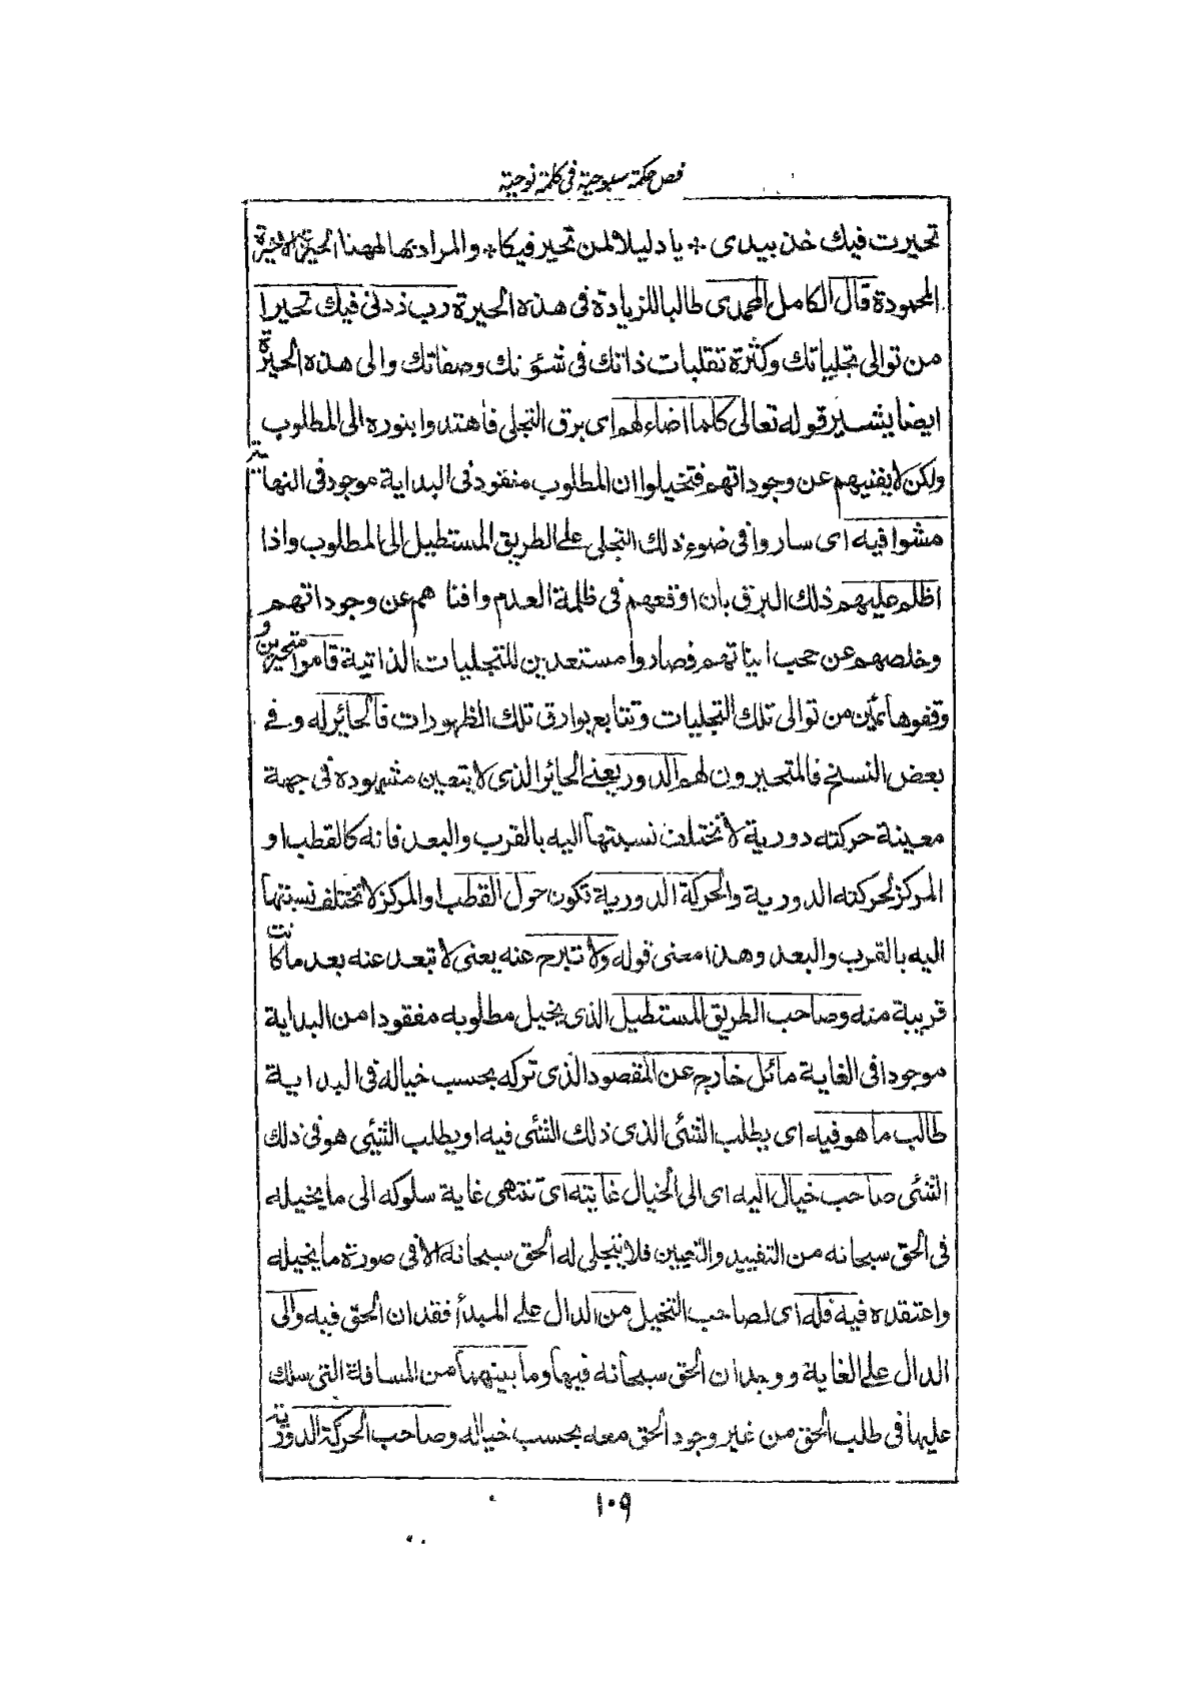 فص حكمة سبوحية فى كلمة نوحية
تحيرت فيك خذ بيدى * يا دليلا لمن تحير فيكا * والمراد بها ههنا الحيرة الاخيرة
المحمودة قال الكامل المحمدى طالبا للزيادة فى هذه الحيرة رب زدنى فيك تحيرا
من توالى تجلياتك وكثرة تقلبات ذاتك فى شؤنك وصفاتك والى هذه الحيرة
ايضا يشير قوله تعالى كلما اضاء لهم اى برق التجلى فاهتدوا بنوره الى المطلوب
ولكن لا يفنيهم عن وجوداتهم فتخيلوا ان المطلوب مفقود فى البداية موجود فى النهاية
مشوا فيه اى ساروا فى ضوء ذلك التجلى على الطريق المستطيل الى المطلوب واذا
اظلم عليهم ذلك البرق بان اوقعهم فى ظلمة العدم وافناهم عن وجوداتهم
وخلصهم عن حجب انياتهم فصاروا مستعدين للتجليات الذاتية قاموا متحيرين و
وقفوا هائمين من توالى تلك التجليات وتتابع بوارق تلك الظهورات فالحائر له وفے
بعض النسخ فالمتحيرون لهم الدور يعنے الحائر الذى لا يتعين مشهوده فى جهة
معينة حركته دورية لا تختلف نسبتها اليه بالقرب والبعد فانه كالقطب او
المركز لحركته الدورية والحركة الدورية تكون حول القطب او المركز لا تختلف نسبتها
اليه بالقرب والبعد وهذا معنى قوله ولا تبرح عنه يعنى لا تبعد عنه بعد ما كانت
قريبة منه وصاحب الطريق المستطيل الذى يخيل مطلوبه مفقودا من البداية
موجودا فى الغاية مائل خارج عن المقصود الذى تركه بحسب خياله فى البداية
طالب ما هو فيه اى يطلب الشئ الذى ذلك الشئ فيه او يطلب الشئ هو فى ذلك
الشئ صاحب خيال اليه اى الى الخيال غايته اى تنتهى غاية سلوكه الى ما يخيله
فى الحق سبحانه من التقييد والتعيين فلا يتجلى له الحق سبحانه الا فى صورة ما يخيله
واعتقده فيه فله اى لصاحب التخيل من الدال على المبدأ فقدان الحق فيه والى
الدال على الغاية ووجدان الحق سبحانه فيها وما بينهما من المسافة التى سلك
عليها فى طلب الحق من غير وجود الحق معه بحسب خياله وصاحب الحركة الدورية
١٠٩